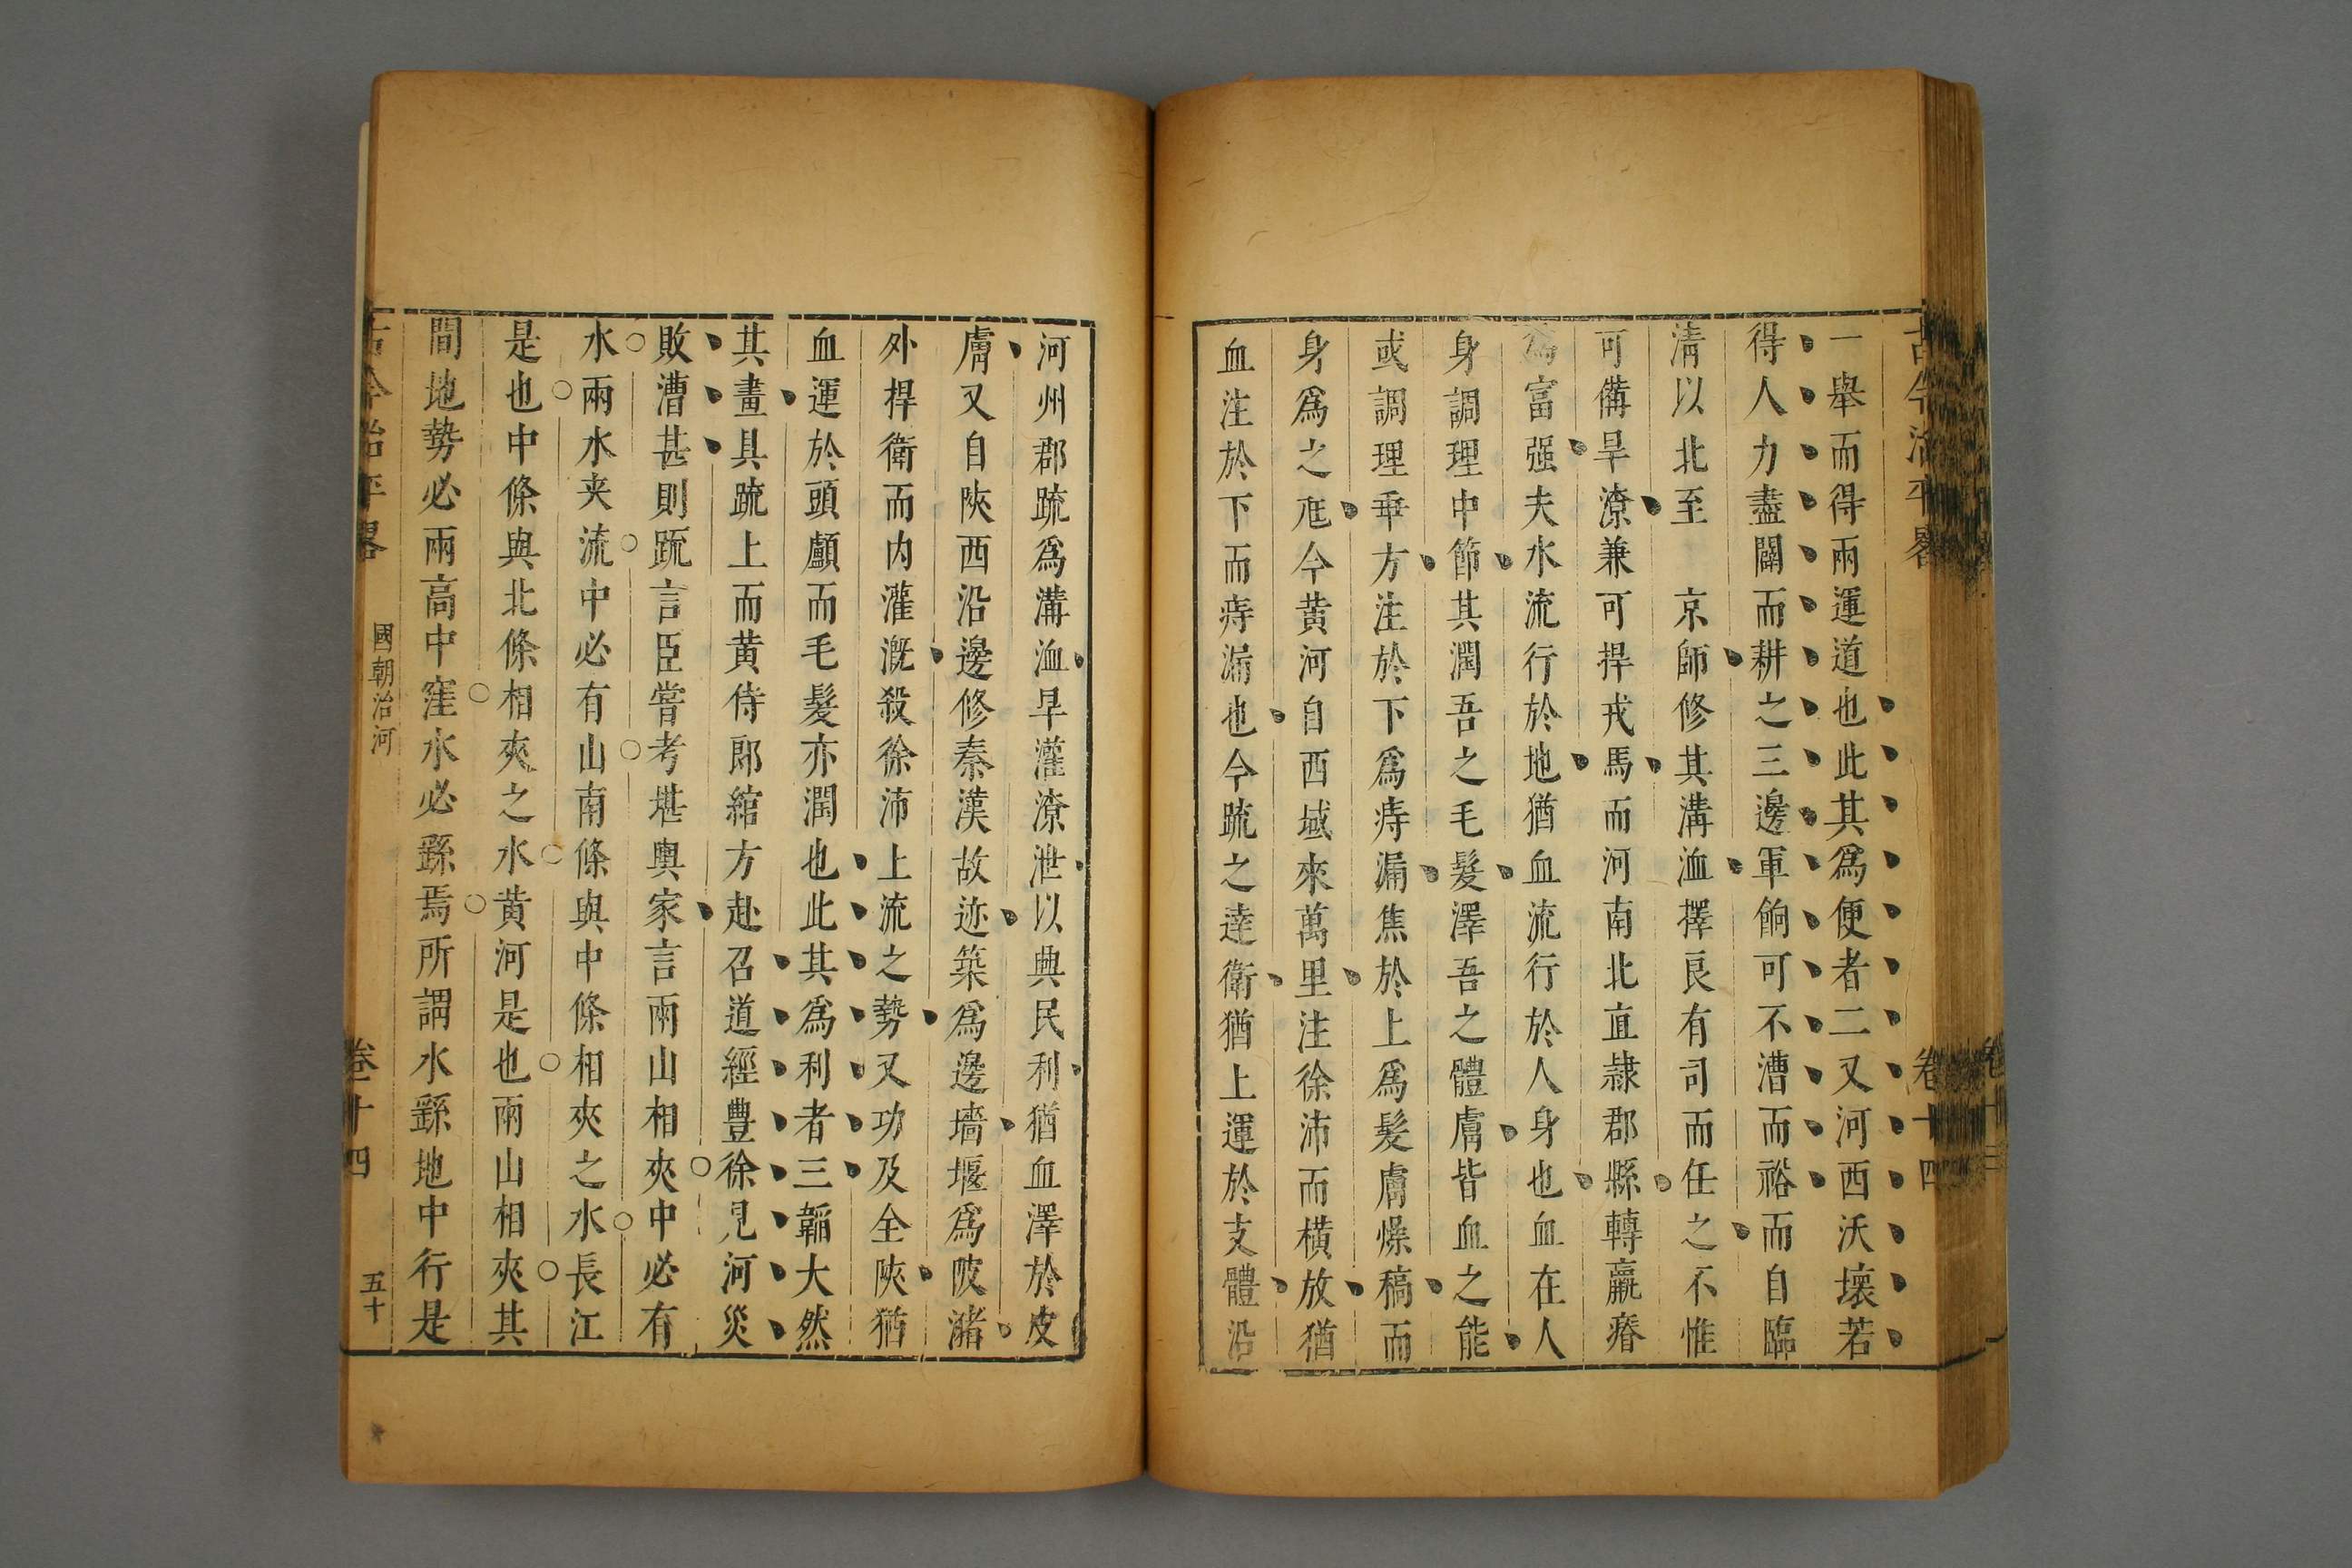 古今治平畧 卷十四
一舉而得兩運道也此其爲便者二又河西沃壤若
得人力盡闢而耕之三邊軍餉可不漕而裕而自臨
清以北至 京師修其溝洫擇良有司而任之不惟
可備旱潦兼可捍戎馬而河南北直隷郡縣轉羸瘠
爲富强夫水流行於地猶血流行於人身也血在人
身調理中節其潤吾之毛髮澤吾之體膚皆血之能
或調理乖方注於下爲痔漏焦於上爲髮膚燥稿而
身爲之尫今黄河自西域來萬里注徐沛而横放猶
血注於下而痔漏也今疏之逹衛猶上運於支體沿
河州郡疏爲溝洫旱灌潦泄以興民利猶血澤於皮
膚又自陝西沿邊修秦漢故迹築爲邊墻堰爲陂瀦
外捍衛而内灌漑殺徐沛上流之勢又功及全陝猶
血運於頭顱而毛髮亦潤也此其爲利者三韜大然
其畫具疏上而黄侍郎綰方赴召道經豐徐見河災
敗漕甚則疏言臣嘗考堪輿家言兩山相夾中必有
水兩水夹流中必有山南條與中條相夾之水長江
是也中條與北條相夾之水黄河是也兩山相夾其
間地勢必兩高中窪水必繇焉所謂水繇地中行是
古今治平畧 國朝治河 卷十四 五十